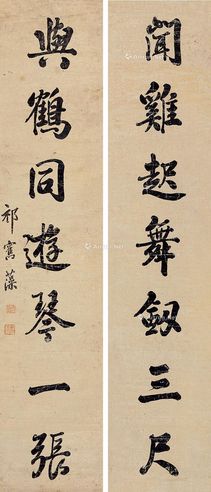 聞雞起舞劔三尺
與鶴同遊琴一張
祁寯藻